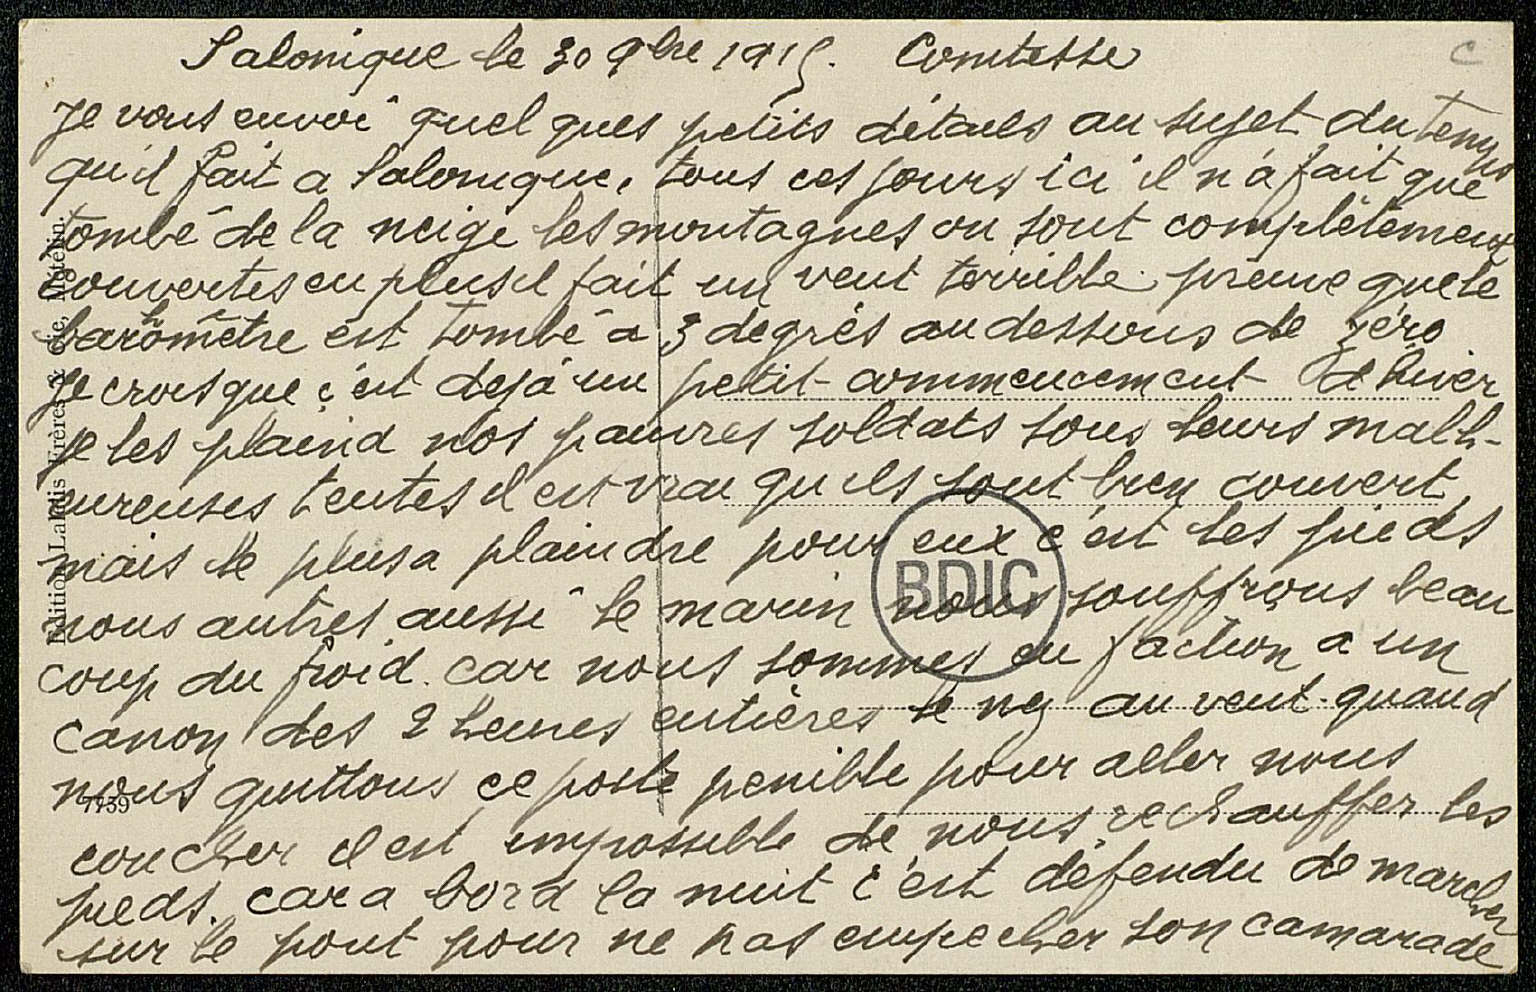 Salonique le 30 9bre 1915. Comtesse
Je vous envoi quelques petits détails au sujet du temps
qu'il fait a Salonique. tous ces jours ici il n'a fait que
tombé de la neige les montagnes en sont complètement
couvertes en plus il fait un vent terrible. preuve que le
baromètre est tombé a 3 degrés au dessous de zéro
Je crois que c'est dejà un petit commencement d'hiver
Je les plaind nos pauvres soldats sous leurs malh-
eureuses tentes il est vrai qu'ils sont bien couvert,
mais le plus a plaindre pour eux c'est les pieds
nous autres aussi le marin nous souffrons beau
coup du froid. car nous sommes en faction a un
canon des 2 heures entières le nez au vent. quand
nous quittons ce poste penible pour aller nous
coucher il est impossible de nous rechauffer les
pieds. car a bord la nuit c'est défendu de marcher
sur le pont pour ne pas empecher son camarade
BDIC
C
7739